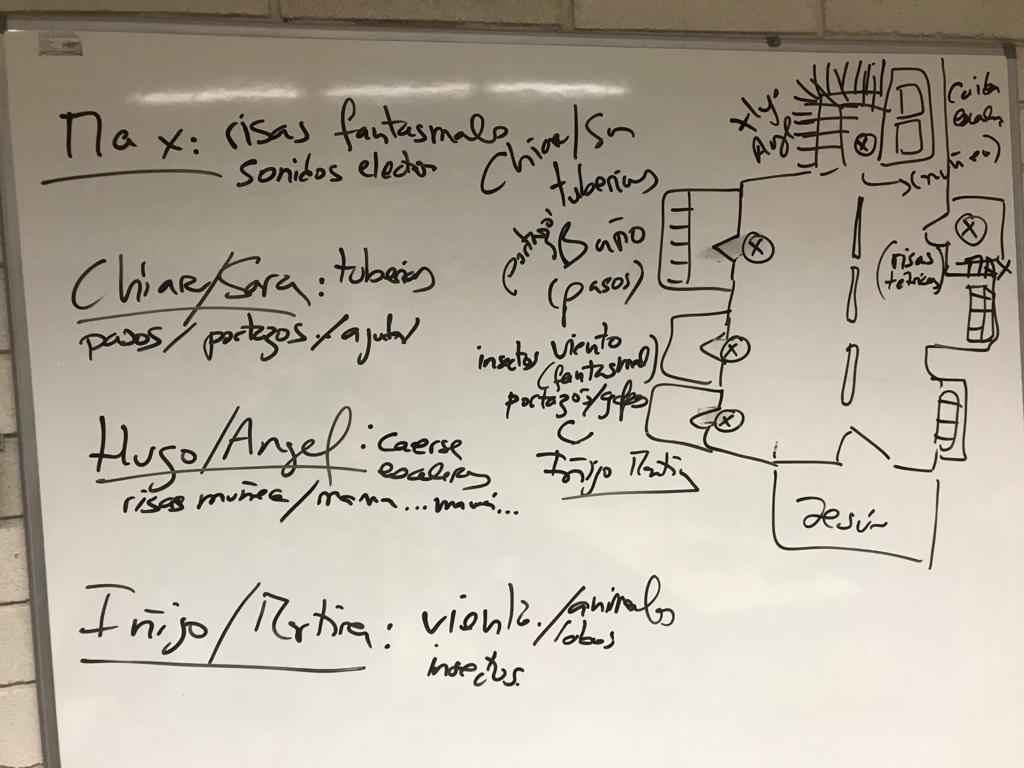 Max: risas fantasmales
sonidos elector
Chiara/Sara: tuberias
pasos/portazos/ayuda
Hugo/Angel: caerse
escaleras
risas muñeca/mama...mami...
Iñigo/Martina: viento/animales
lobos
insectos.
Chiar/Sa
tuberias
portazo
Baño
(pasos)
insectos viento
(fantasmal)
portazos/golpes
Iñigo Martin
x
x
x
x
x
Caida
escaleras
(muñeca)
(risas
tetricas)
Max
Jesús